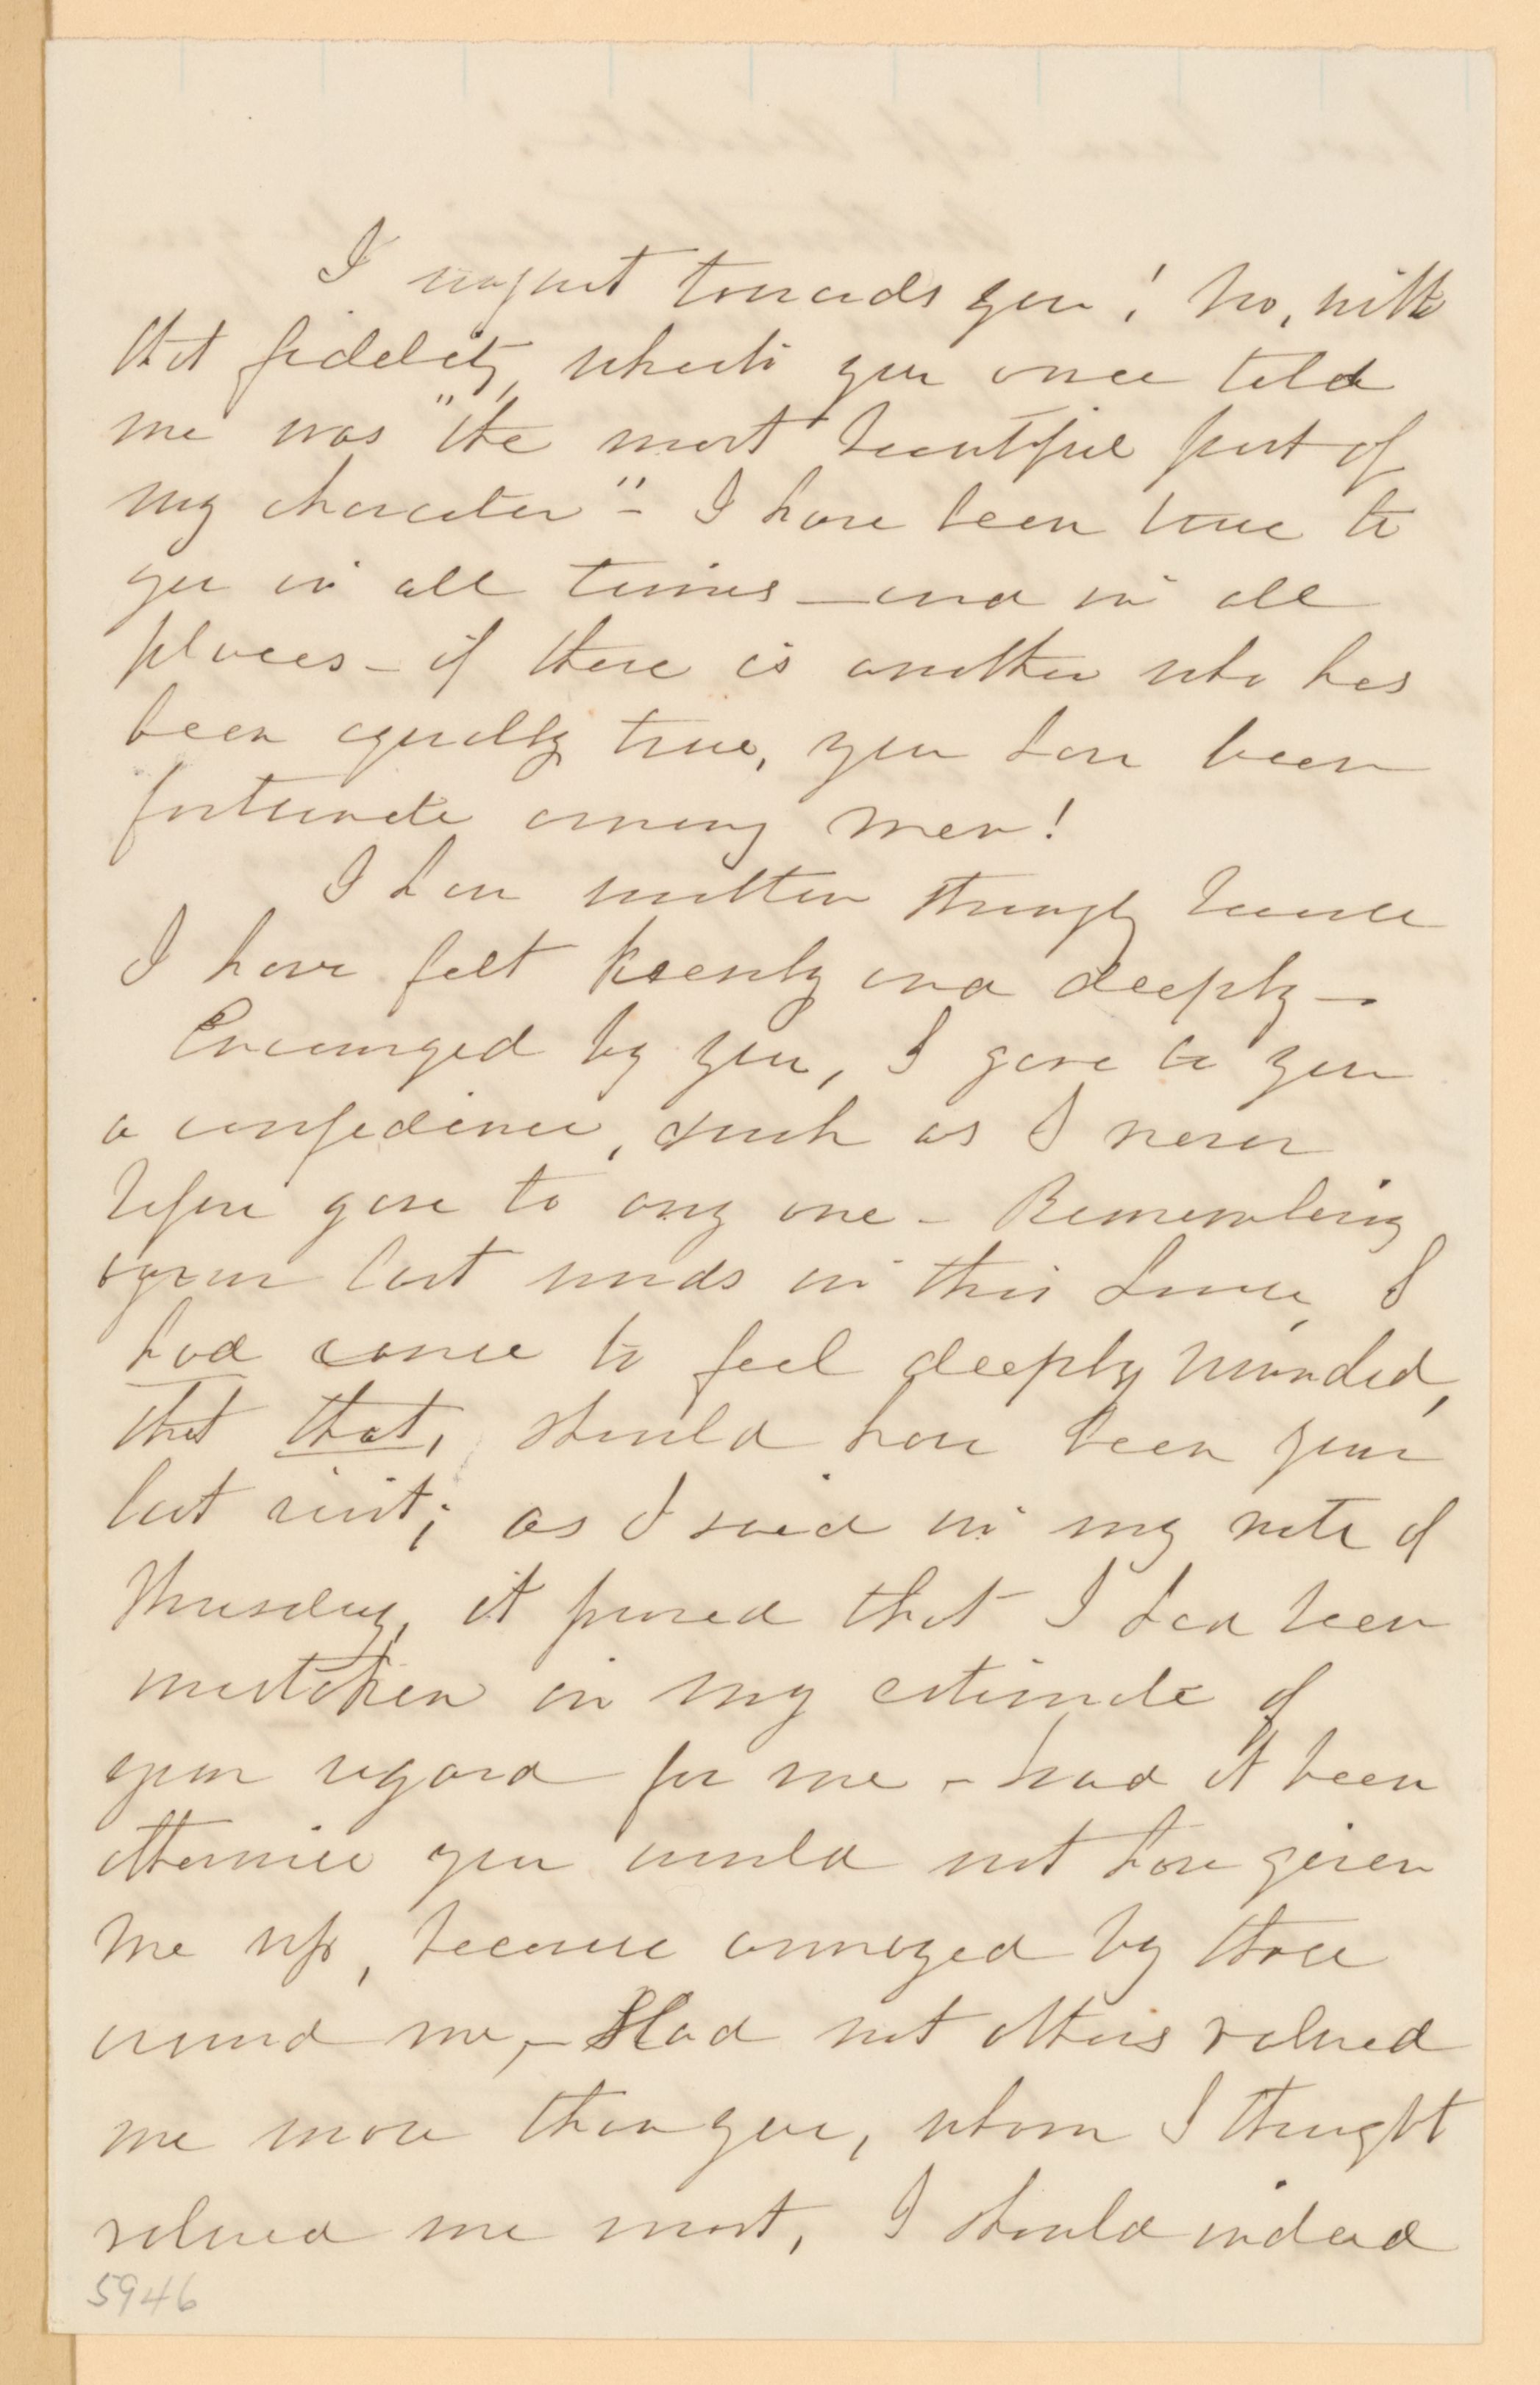 I unjust towards you! No, with
that fidelity, which you once told
me was "the most beautiful part of
my character" - I have been true to
you in all times - and in all
places - if there is another who has
been equally true, you have been
fortunate among men!
I have written strongly because
I have felt keenly and deeply -
Encouraged by you, I gave to you
a confidence, such as I never
before gave to any one - Remembering
your last words in this house, I
had come to feel deeply wounded,
that that, should have been your
last visit; as I said in my note of
Thursday, it proved that I had been
mistaken in my estimate of
your regard for me - had it been
otherwise you would not have given
me up, because annoyed by those
around me, - Had not others valued
me more than you, whom I thought
valued me most, I should indeed
5946